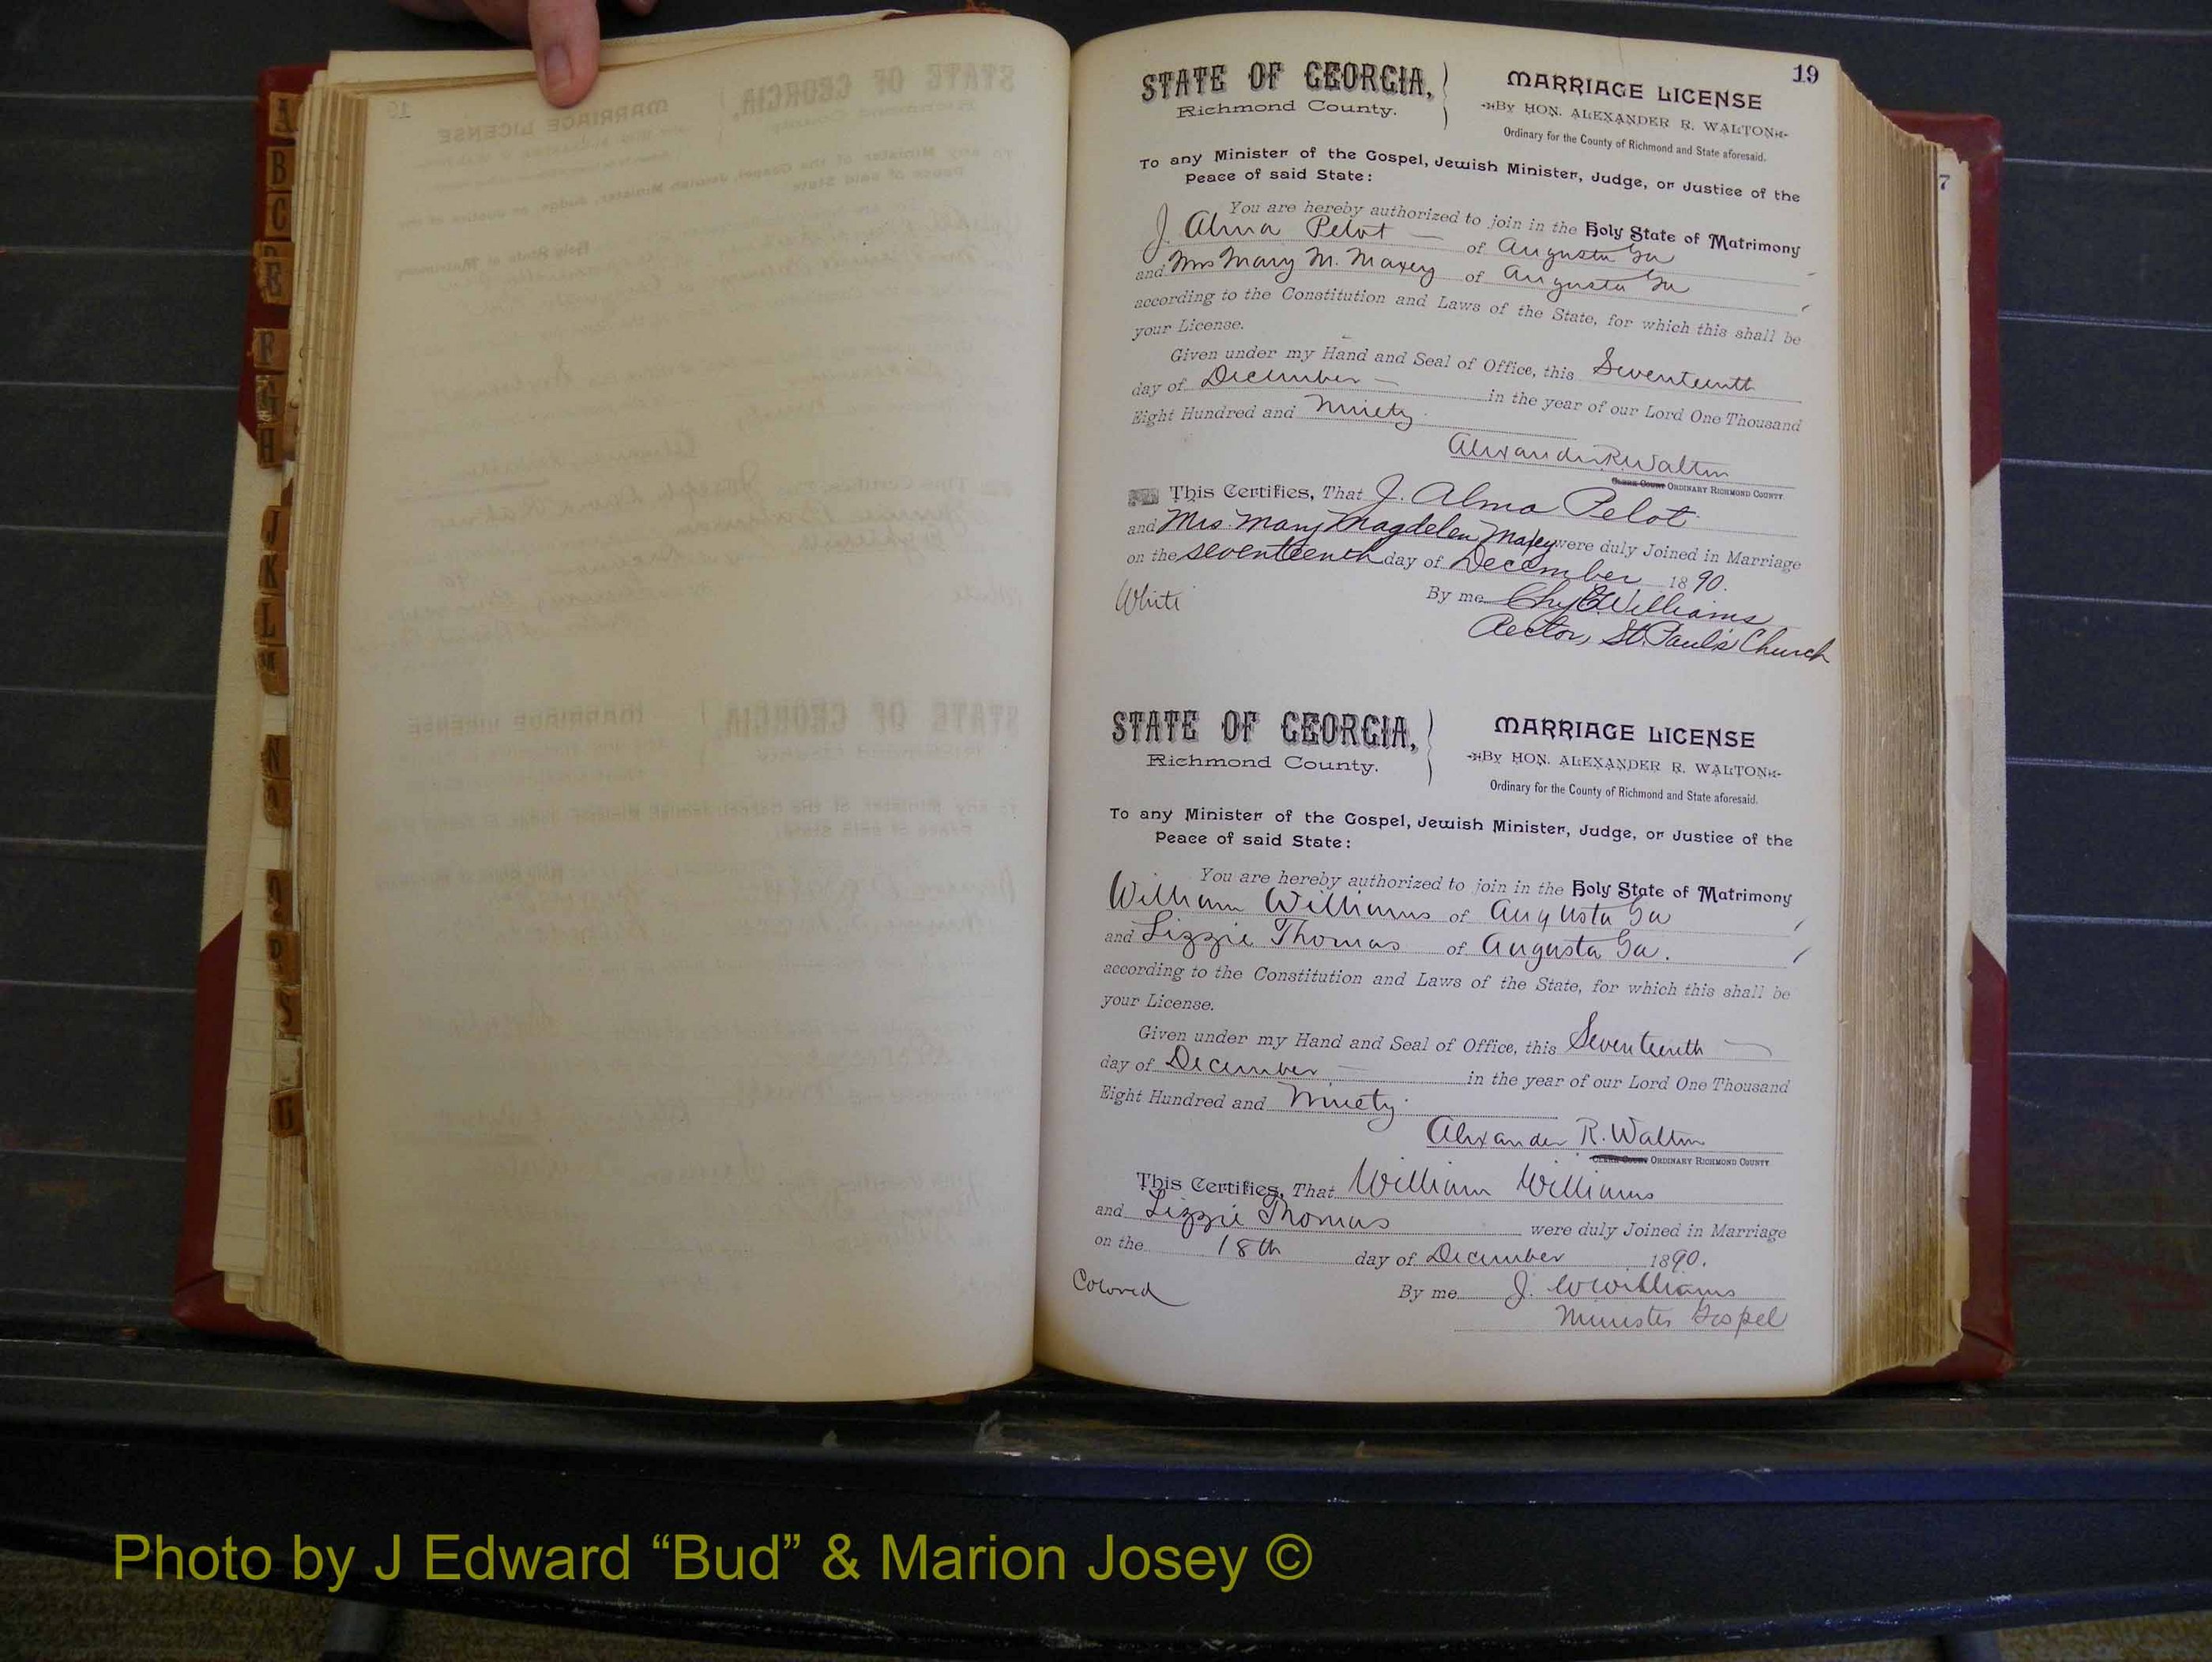 A
B
C
E
F
G
H
J
K
L
M
N
O
P
S
19
STATE OF GEORGIA,
Richmond County.
MARRIAGE LICENSE
By HON. ALEXANDER R. WALTON
Ordinary for the County of Richmond and State aforesaid.
To any Minister of the Gospel, Jewish Minister, Judge, or Justice of the
Peace of said State:
You are hereby authorized to join in the Holy State of Matrimony
J. Alma Pelot of Augusta Ga
and Mrs Mary M. Maxey of Augusta Ga
according to the Constitution and Laws of the State, for which this shall be
your License.
Given under my Hand and Seal of Office, this Seventeenth
day of December in the year of our Lord One Thousand
Eight Hundred and Ninety
Alexander R. Walton
Clerk Court ORDINARY RICHMOND COUNTY.
This Certifies, That J. Alma Pelot
and Mrs. Mary Magdelen Maxey were duly Joined in Marriage
on the seventeenth day of December 1890.
White
By me Williams
Rector, St. Paul's Church
7
STATE OF GEORGIA,
Richmond County.
MARRIAGE LICENSE
By HON. ALEXANDER R. WALTON
Ordinary for the County of Richmond and State aforesaid.
To any Minister of the Gospel, Jewish Minister, Judge, or Justice of the
Peace of said State:
You are hereby authorized to join in the Holy State of Matrimony
William Williams of Augusta Ga
and Lizzie Thomas of Augusta Ga.
according to the Constitution and Laws of the State, for which this shall be
your License.
Given under my Hand and Seal of Office, this Seventeenth
day of December in the year of our Lord One Thousand
Eight Hundred and Ninety
Alexander R. Walton
Clerk Court ORDINARY RICHMOND COUNTY
This Certifies, That William Williams
and Lizzie Thomas were duly Joined in Marriage
on the 18th day of December 1890.
Colored
By me J. W Williams
Minister Gospel
Photo by J Edward “Bud” & Marion Josey ©